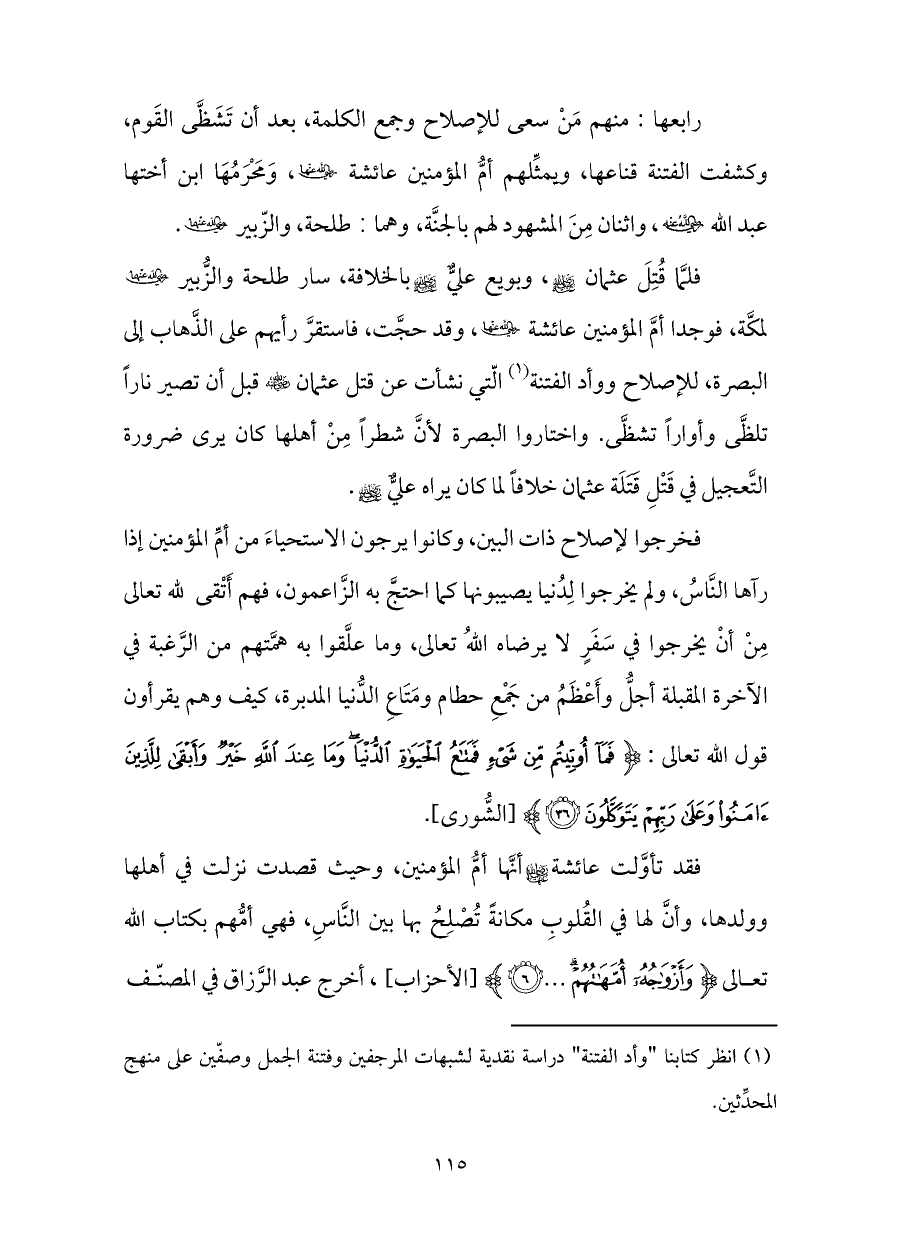 رابعها : منهم مَنْ سعى للإصلاح وجمع الكلمة، بعد أن تَشَظَّى القَوم،
وكشفت الفتنة قناعها، ويمثِّلهم أمُّ المؤمنين عائشة رضي الله عنها، وَمَحْرَمُهَا ابن أختها
عبد الله رضي الله عنه، واثنان مِنَ المشهود لهم بالجنَّة، وهما : طلحة، والزّبير رضي الله عنهما.
فلمَّا قُتِلَ عثمان رضي الله عنه، وبويع عليٌّ رضي الله عنه بالخلافة، سار طلحة والزُّبير رضي الله عنهما
لمكَّة، فوجدا أمَّ المؤمنين عائشة رضي الله عنها، وقد حجَّت، فاستقرَّ رأيهم على الذَّهاب إلى
البصرة، للإصلاح ووأد الفتنة(١) الّتي نشأت عن قتل عثمان رضي الله عنه قبل أن تصير ناراً
تلظَّى وأواراً تشظَّى. واختاروا البصرة لأنَّ شطراً مِنْ أهلها كان يرى ضرورة
التَّعجيل في قَتْلِ قَتَلَة عثمان خلافاً لما كان يراه عليٌّ رضي الله عنه.
فخرجوا لإصلاح ذات البين، وكانوا يرجون الاستحياءَ من أمِّ المؤمنين إذا
رآها النَّاسُ، ولم يخرجوا لِدُنيا يصيبونها كما احتجَّ به الزَّاعمون، فهم أَتْقى لله تعالى
مِنْ أنْ يخرجوا في سَفَرٍ لا يرضاه اللهُ تعالى، وما علَّقوا به همَّتهم من الرَّغبة في
الآخرة المقبلة أجلُّ وأَعْظَمُ من جَمْعِ حطام ومَتَاعِ الدُّنيا المدبرة، كيف وهم يقرأون
قول الله تعالى : ﴿ فَمَآ أُوتِيتُم مِّن شَىْءٍ فَمَتَٰعُ ٱلْحَيَوٰةِ ٱلدُّنْيَا ۖ وَمَا عِندَ ٱللَّهِ خَيْرٌ وَأَبْقَىٰ لِلَّذِينَ
ءَامَنُوا۟ وَعَلَىٰ رَبِّهِمْ يَتَوَكَّلُونَ ٣٦ ﴾ [الشُّورى].
فقد تأوَّلت عائشة رضي الله عنها أنَّها أمُّ المؤمنين، وحيث قصدت نزلت في أهلها
وولدها، وأنَّ لها في القُلوبِ مكانةً تُصْلِحُ بها بين النَّاسِ، فهي أمُّهم بكتاب الله
تعـالى ﴿ وَأَزْوَٰجُهُۥٓ أُمَّهَٰتُهُمْ ۗ ... ٦ ﴾ [الأحزاب] ، أخرج عبد الرَّزاق في المصنّـف
(١) انظر كتابنا "وأد الفتنة" دراسة نقدية لشبهات المرجفين وفتنة الجمل وصفّين على منهج
المحدِّثين.
١١٥